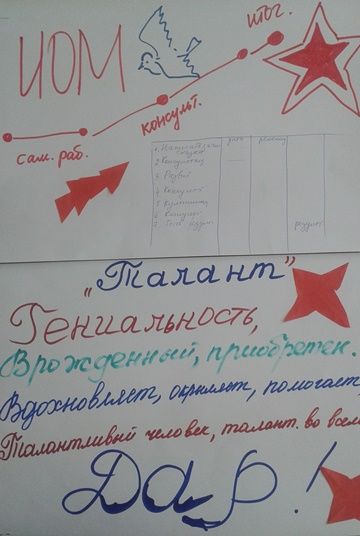 ИОМ
итог.
консульт.
сам. раб.
дата
1.
2. Консультац
3
4 Консульт
5
6 Консульт
7
результ
"Талант"
Гениальность,
Врожденный, приобретен.
Вдохновляет, окрыляет, помогает,
Талантливый человек, талант. во всем
Дар!